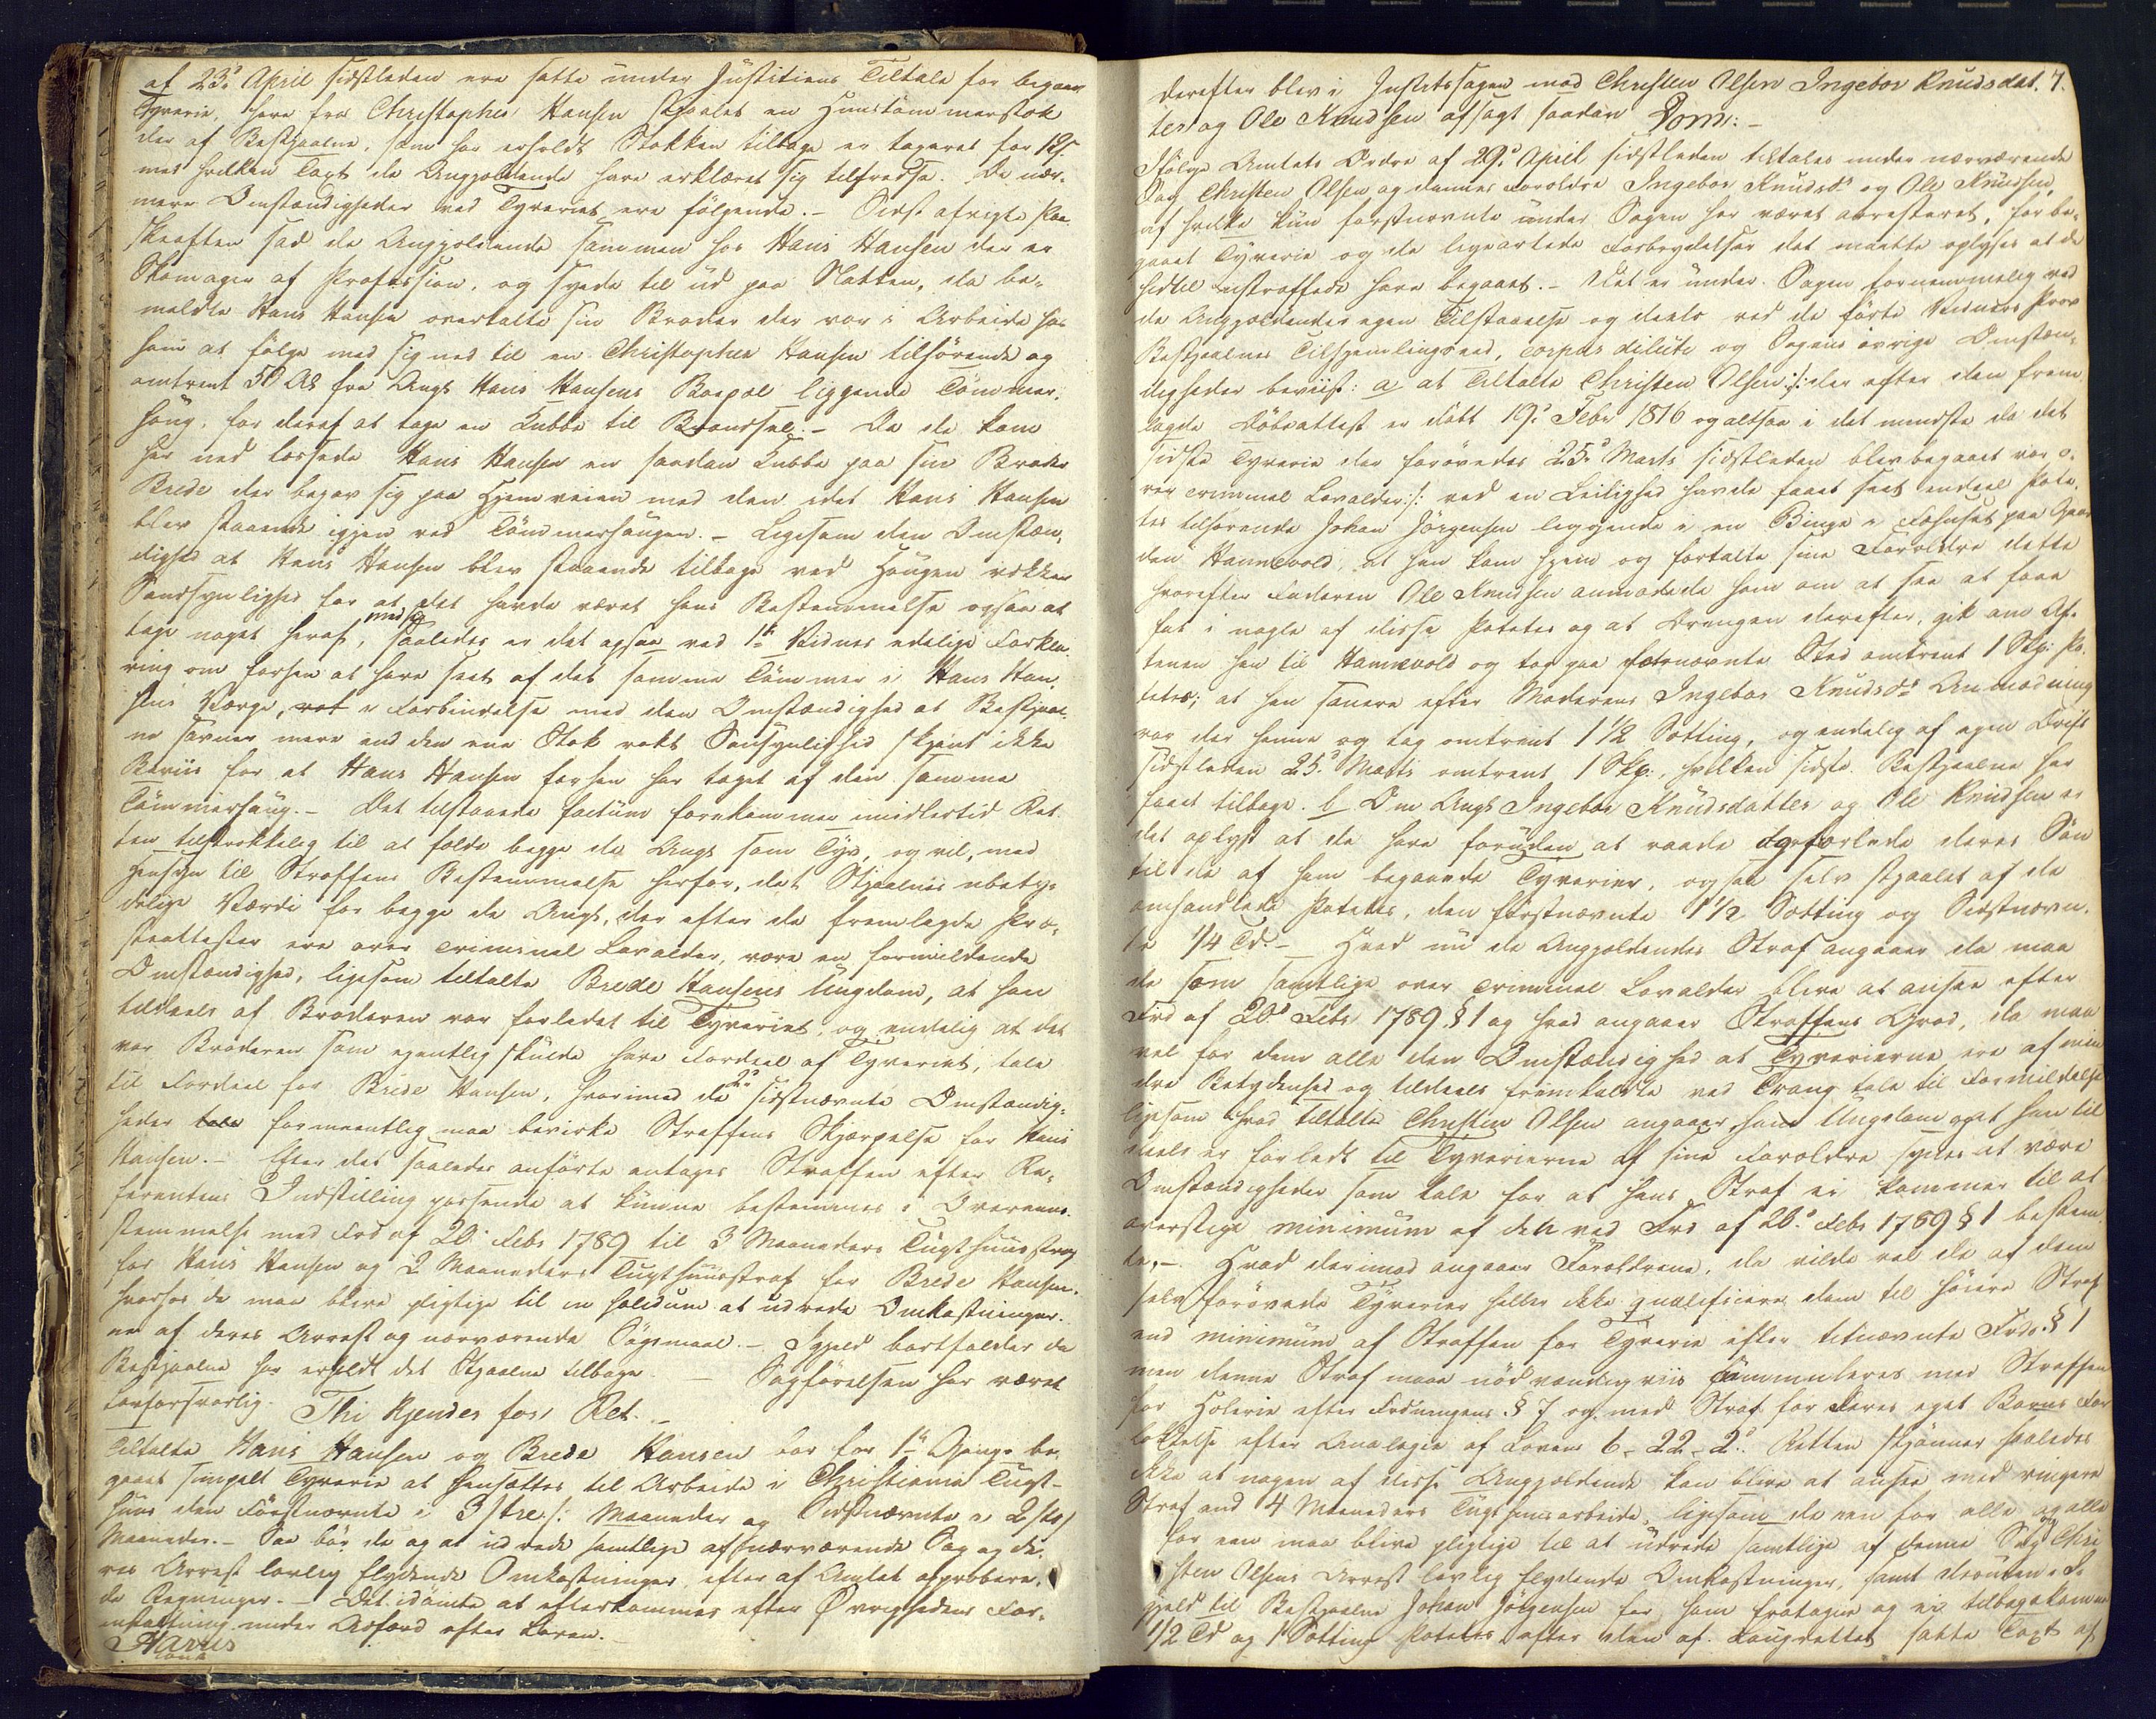 af 23de April sidstleden ere satte under Justitiens Tiltale for begaaet
Tyverie, have fra Christopher Hansen stjaalet en Huustømmerstok
der af Bestjaalne, som har erholdt Stokken tilbage er taxeret for 12 s.
med hvilken Taxt de Angjældende have erklæret sig tilfredse. De nær-
mere Omstændigheder ved Tyveriet ere følgende. - Sidstafvigte Paa
skeaften sad de Angjældende sammen hos Hans Hansen der er
Skomager af Profession, og syede til ud paa Natten, da be-
meldte Hans Hansen overtalte sin Broder der var i Arbeide hos
ham at følge med sig ned til en Christopher Hansen tilhørende og
omtrent 50 Al. fra Angj. Hans Hansens Boepæl liggende Tømmer-
houg, for deraf at tage en Kubbe til Brændsel. - Da de kom
her ned lossede Hans Hansen en saadan Kubbe paa sin Broder
Brede der begav sig paa Hjemveien med den idet Hans Hansen
blev staaende igjen ved Tømmerhougen. - Ligesom den Omstæn-
dighed at Hans Hansen blev staaende tilbage ved Hougen vækker
Sandsynlighed for at det havde været hans Bestemmelse ogsaa at
tage noget heraf med sig, saaledes er det ogsaa ved 1ste Vidnes edelige Forkla-
ring om forhen at have seet af det samme Tømmer i Hans Han-
sens Værge, i Forbindelse med den Omstændighed at Bestjaal-
ne savner mere end den ene Stok vakt Sansynlighed skjønt ikke
Beviis for at Hans Hansen forhen har taget af den samme
Tømmerhoug. - Det tilstaaede factum forekommer imidlertid Ret-
ten tilstrækkelig til at fælde begge de Angj. som Tyve, og vil, med
Hensyn til Straffens Bestemmelse herfor, det Stjaalnes ubety-
delige Værdi for begge de Angj., der efter de fremlagde Præ-
steattester ere over criminel Lavalder, være en formildende
Omstændighed, ligesom tiltalte Brede Hansens Ungdom, at han
tildeels af Broderen var forledet til Tyveriet, og endelig at det
var Broderen som egentlig skulde have Fordeel af Tyveriet, tale
til Fordeel for Brede Hansen, hvorimod de 2de sidstnævnte Omstændig-
heder formeentlig maa bevirke Straffens Skjærpelse for Hans
Hansen. - Efter det saaledes anførte antages Straffen efter Re-
ferentens Indstilling passende at kunne bestemmes i Overeens-
stemmelse med Frd. af 20. Febr 1789 til 3 Maaneders Tugthuusstraf
for Hans Hansen og 2 Maaneders Tugthuusstraf for Brede Hansen,
hvorhos de maa blive pligtige til in solidum at udrede Omkostninger-
ne af deres Arrest og nærværende Søgsmaal. - Igjeld bortfalder da
Bestjaalne har erholdt det Stjaalne tilbage. - Sagførelsen har været
Lovforsvarlig. Thi kjendes for Ret. -
Tiltalte Hans Hansen og Brede Hansen bør for 1ste Gang be-
gaaet simpelt Tyverie at hensættes til Arbeide i Christiania Tugt-
huus den Førstnævnte i 3 /:tre:/ Maaneder og Sidstnævnte i 2 /:to:/
Maaneder. - Saa bør de og at udrede samtlige af nærværende Sag og de-
res Arrest lovlig flydende Omkostninger efter af Amtet approbere-
de Regninger. - Det idømte at efterkommes efter Øvrighedens For-
anstaltning under Adfærd efter Loven. -
Harris
const.
7.
Derefter blev i Justitssagen mod Christen Olsen Ingebor Knudsdat-
ter og Ole Knudsen afsagt saadan Dom: -
Ifølge Amtets Ordre af 29de April sidstleden tiltales under nærværende
Sag Christen Olsen og dennes Forældre Ingebor Knudsdr og Ole Knudsen,
af hvilke kun førstnævnte under Sagen har været arresteret, for be-
gaaet Tyverie og de ligeartede Forbrydelser det maatte oplyses at de
hidtil ustraffede have begaaet. - Det er under Sagen fornemmelig ved
de Angjældendes egen Tilstaaelse og deels ved de førte Vidners Prov
Bestjaalnes Tilhjemlingseed, corpus dilicti og Sagens øvrige Omstæn-
digheder beviist: a at Tiltalte Christen Olsen /: der efter den frem
lagde Døbeattest er født 19de Febr 1816 og altsaa i det mindste da det
sidste Tyverie der forøvedes 25de Marts sidstleden blev begaaet var o-
ver criminel Lavalder :/ ved en Leilighed havde faaet seet endeel Pota-
tes tilhørende Johan Jørgensen liggende i en Binge i Fæhuset paa Gaar
den Hannevold, at han kom hjem og fortalte sine Forældre dette
hvorefter Faderen Ole Knudsen anmodede ham om at see at faae
fat i nogle af disse Potates og at Drengen derefter, gik om Af-
tenen hen til Hannevold og tog paa førstnævnte Sted omtrent 1 Skp: Po-
tates; at han senere efter Moderens Ingebor Knudsdrs Anmodning
var der henne og tog omtrent 1 1/2 Sætting, og endelig af egen Drift
sidstleden 25de Marts omtrent 1 Skp:, hvilken sidste Bestjaalne har
faaet tilbage. b Om Angj. Ingebor Knudsdatter og Ole Knudsen er
det oplyst at de have foruden at raade og forlede deres Søn
til de af ham begaaede Tyverier, ogsaa selv stjaalet af de
omhandlede Potates, den førstnævnte 1 1/2 Sætting og Sidstnævn-
te 1/4 Td. - Hvad nu de Angjældendes Straf angaaer da maa
de som samtlige over criminel Lavalder blive at ansee efter
Frd af 20de Febr 1789 § 1 og hvad angaaer Straffens Grad, da maa
vel for dem alle den Omstændighed at Tyverierne ere af min
dre Betydenhed og tildeels fremkaldte ved Trang tale til Formildelse
ligesom hvad tiltalte Christen Olsen angaaer, hans Ungdom og at han til
deels er forledt til Tyverierne af sine Forældre synes at være
Omstændigheder som tale for at hans Straf ei kommer til at
overstige minimum af den ved Frd af 20de Febr 1789 § 1 bestem
te. - Hvad derimod angaaer Forældrene, da vilde vel de af dem
selv forøvede Tyverier heller ikke qvalificere dem til høiere Straf
end minimum af Straffen for Tyverie efter bemeldte Frds § 1
men denne Straf maa nødvændigviis cummuleres med Straffen
for Hælerie efter Frdningens § 7 og med Straf for deres eget Barns For
lokkelse efter Analogie af Loven 6-22-2de. Retten skjønner saaledes
ikke at nogen af disse Angjældende kan blive at ansee med ringere
Straf end 4 Maaneders Tugthuusarbeide, ligesom de een for alle og alle
for een maa blive pligtige til at udrede samtlige af denne Sag og Chri
sten Olsens Arrest lovlig flydende Omkostninger, samt desuden I-
gjeld til Bestjaalne Johan Jørgensen for ham fratagne og ei tilbagekomne
1/2 Td og 1 Sætting Potates efter den af Laugrettet satte Taxt af